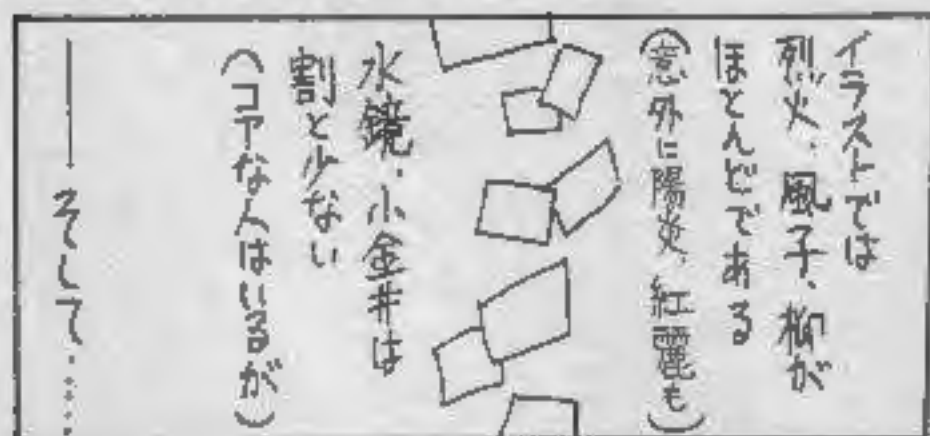 イラストでは
烈火、風子、柳が
ほとんどである
（意外に陽炎、紅麗も）
水鏡、小金井は
割と少ない
（コアな人はいるが）
――そして・・・・・